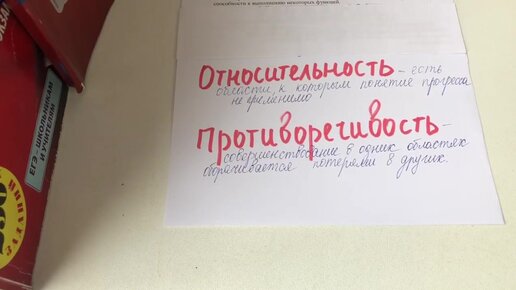 способности к выполнению некоторых функций.
Относительность – есть
области, к которым понятие прогресса
не применимо
Противоречивость –
совершенствование в одних областях
оборачивается потерями в других.
ЕГЭ – ШКОЛЬНИКАМ
И УЧИТЕЛЯМ